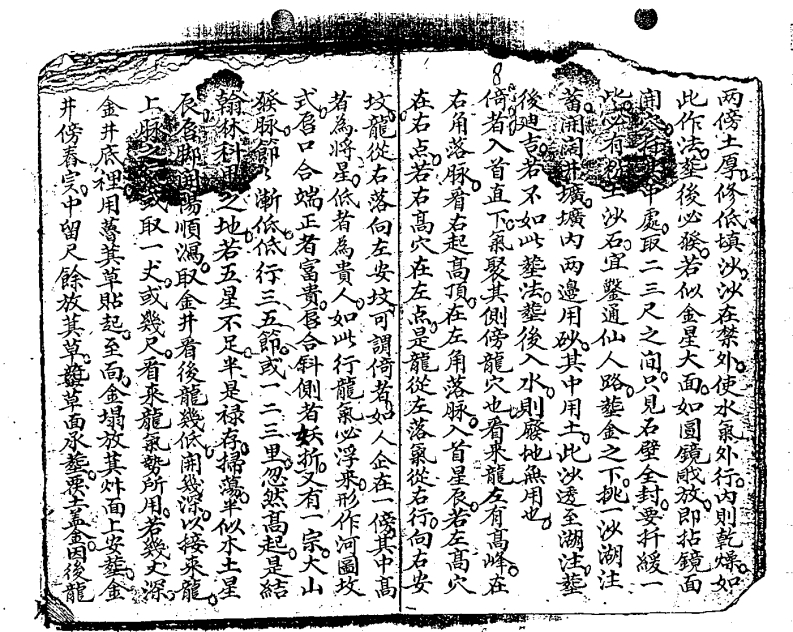 两傍土厚修低填沙沙在禁外使水氣外行内則乾燥如
此作法塟後必發若似金星大面如圓鏡戝放即拈鏡面
開穴行其中處取二三尺之间只見石壁全封要扦緩一
些必有粉土沙石宜鑿通仙人路塟金之下挑一沙湖注
蓄開濶井壙壙内两邊用砂其中用土此沙透至湖注塟
後迪吉若不如此塟法塟後入水則廢地無用也
8
倚者入首直下氣聚其側傍龍穴也看來龍左有高峰在
右角落脉看右起高頂在左角落脉入首星辰若左高穴
在右点若右高穴在左点是龍從左落氣從右行向右安
坟龍從右落向左安坟可謂倚者如人企在一傍其中高
者為將星低者為貴人如此行龍氣必浮來形作河圖坟
式唇口合端正者富貴唇合斜側者妖折又有一宗大山
發脉節漸低低行三五節或一二三里忽然高起是結
翰林科甲之地若五星不足半是禄存掃蕩半似木土星
辰名脚開陽順瀉取金井看後龍幾低開幾深以接來龍
上脉之或取一丈或幾尺看來龍氣勢所用若幾丈深
金井底裡用蓍萁草貼起至面金塌放萁艸面上安塟金
井傍舂实中留尺餘放萁草蓋草面承塟要土盖金因後龍